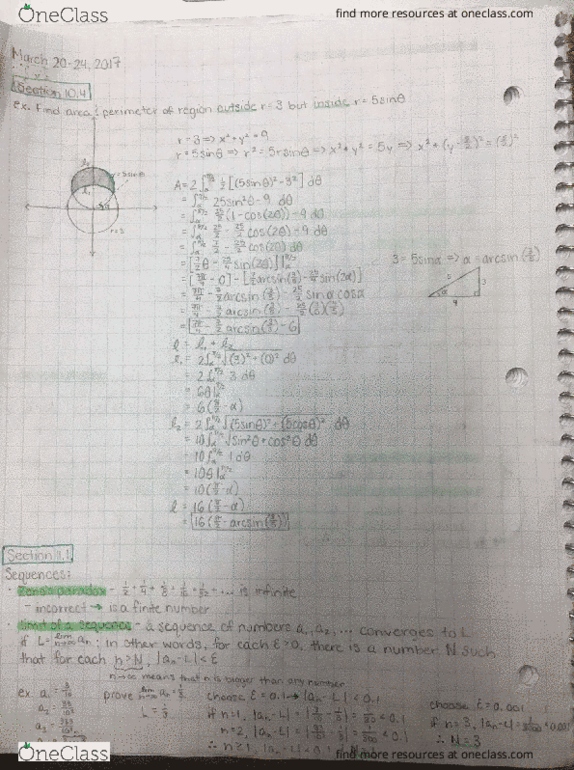 OneClass
find more resources at oneclass.com
March 20-24, 2017
Section 10.4
Ex. Find area & perimeter of region outside r=3 but inside r=5sinθ
r=3 => x²+y²=9
r=5sinθ => r²=5rsinθ => x²+y²=5y => x²+(y-5/2)²=(5/2)²
A=2∫ 1/2[(5sinθ)²-3²]dθ
=∫ 25sin²θ-9 dθ
=∫ 25/2(1-cos(2θ))-9 dθ
=∫ 25/2-25/2cos(2θ)-9 dθ
=∫ 7/2-25/2cos(2θ)dθ
=[7/2θ-25/4sin(2θ)]
3=5sinα => α=arcsin(3/5)
=[7π/4-0]-[7/2arcsin(3/5)-25/4sin(2α)]
=7π/4-7/2arcsin(3/5)-25/2sinαcosα
=7π/4-7/2arcsin(3/5)-25/2(3/5)(4/5)
=7π/4-7/2arcsin(3/5)-6
l=l₁+l₂
l₁=2∫√(3)²+(0)² dθ
=2∫3 dθ
=6θ|
=6(π/2-α)
l₂=2∫√(5sinθ)²+(5cosθ)² dθ
=10∫√sin²θ+cos²θ dθ
=10∫1dθ
=10θ|
=10(π/2-α)
l=16(π/2-α)
=16(π/2-arcsin(3/5))
Section 11.1
Sequences:
· Zeno's paradox - 1/2+1/4+1/8+1/16+1/32+... is infinite
- incorrect → is a finite number
· Limit of a sequence - a sequence of numbers a₁, a₂, ... converges to L
if L=lim aₙ; in other words, for each ε>0, there is a number N such
that for each n≥N, |aₙ-L|<ε
n→∞ means that n is bigger than any number
ex. a₁=3/10 prove lim aₙ=1/3 choose ε=0.1→|aₙ-L|<0.1 choose ε=0.001
a₂=33/100 L=1/3 if n=1, |aₙ-L|=|3/10-1/3|=1/30<0.1 if n=3, |aₙ-L|=1/3000<0.001
n=2, |aₙ-L|=|33/100-1/3|=1/300<0.1 ∴ N=3
OneClass
find more resources at oneclass.com